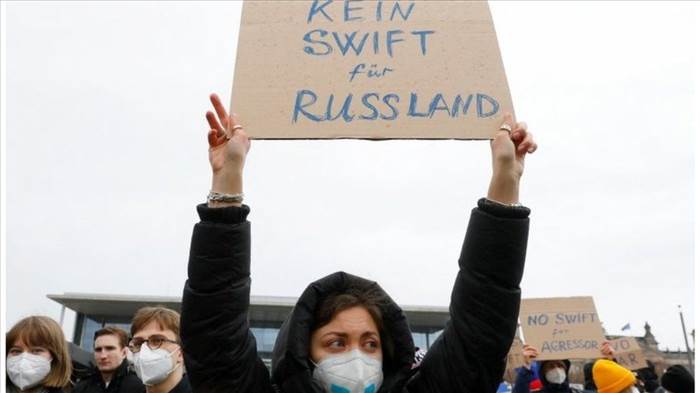 KEIN
SWIFT
für
RUSSLAND
NO SWIFT
for
AGRESSOR
WAR